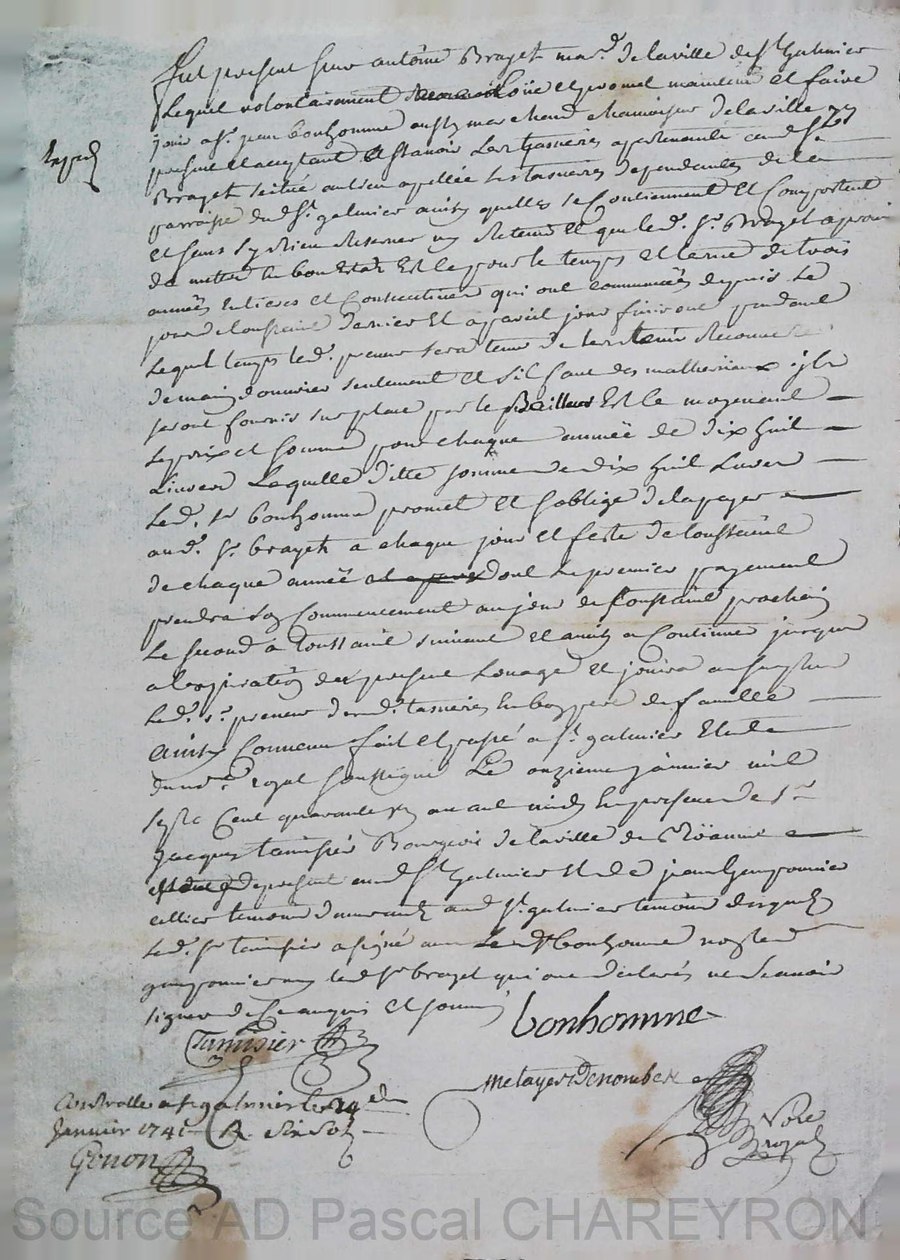 Fut present sieur antoine Brazet ma.d de la ville de st galmier
Lequel volontairement loüe et promet maintenir et faire
jouir a sr jean bonhomme aussy marchand chamoiseur de la ville
present et acceptant Est a savoir Les tasneries apartenante aud. sr
Brazet scituée au lieu apellée Les tasneries dependantes de la
parroisse dud. st galmier ainsy quelles se Contiennent et Comportent
Et sans sy Rien Reserver ny Retenir et que led. sr. Brazet
de mettre En bon Estat Est ce pour le temps et terme de trois
années Entieres et Consecutives qui ont commencées depuis Le
jour de toussaint dernier Et a pareil jour finiront pendant
Lequel temps led. preneur sera tenu de Les tenir
de main d'ouvrier seulement et s'il faut des mathereiaux ils
seront fournis sur place par le Bailleur Est le moyenant
Le prix et somme pour chaque année de dix huit
Livres Laquelle ditte somme de dix huit Livres
Led. sr bonhomme promet et soblige de la payer
aud. sr. brazet a chaque jour et feste de toussaint
de chaque année dont Le premier payement
prendra son Commencement au jour de toussaint prochain
Le second a toussaint suivant et ainsy a Continuer jusques
a lexpiration du present Louage et jouira
Led. sr. preneur desd. tasneries En bon pere de famille
Ainsy Convenu fait et passé a st galmier Etude
du no.re Royal soussigné Le onzieme janvier mil
sept Cent quarante un avant midy En presence de sr
jacques tamisier Bourgeois de la ville de Röanne
de present aud. st galmier Et de jean
cellier temoins demeurant aud. st galmier temoins
Led. sr tamisier a signé avec Led. sr bonhomme non led.
ny led. sr brazet qui ont declarés ne scavoir
signer de Ce enquis et sommés
bonhomme
Tamisier
metayer denombek
No.re
Royal
Controllé a st galmier le 14e
janvier 1741
Genon
Source AD Pascal CHAREYRON